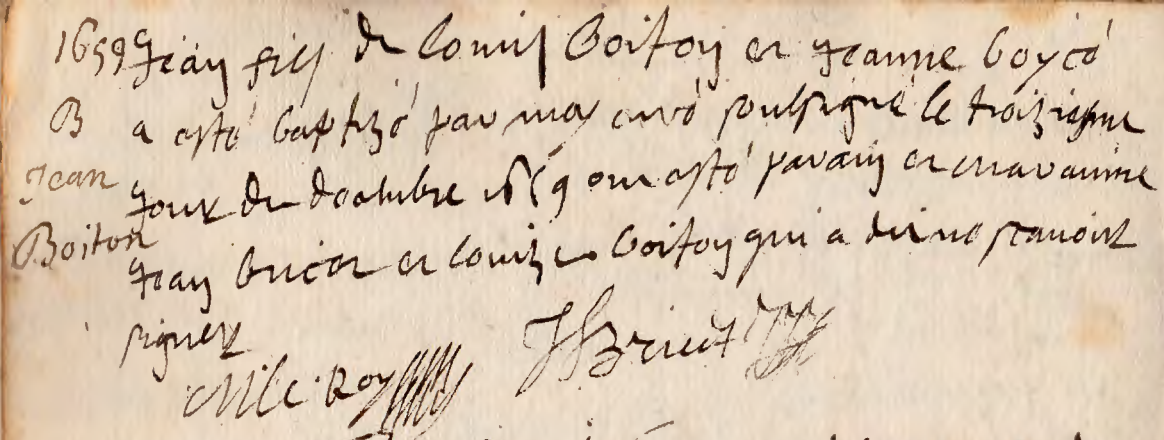 1659 Jean fils de Louis Boiton et Jeanne Boyco
B a esté baptizé par moy curé soubsigné le troiziesme
Jean
jour de d'octubre 1659 ont esté parain et marainne
Boiton
Jean Bricet et Louize Boiton qui a dit ne scavoir
signer
M le Roy J Bricet